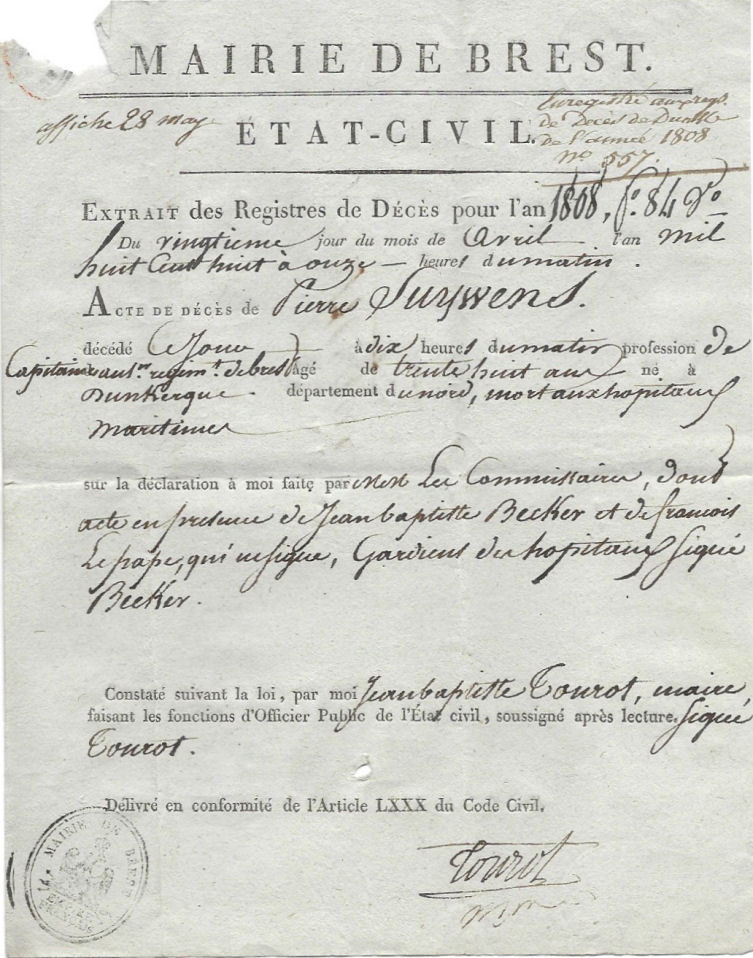 MAIRIE DE BREST.
affiché 28 may
Enregistré aux regs
de Décès de Dunkke
de l'année 1808
No 557.
ÉTAT-CIVIL.
EXTRAIT des Registres de DÉCÈS pour l'an 1808, fo. 84 Vo
Du vingtieme jour du mois de Avril l'an mil
huit Cent huit à onze — heures du matin.
ACTE DE DÉCÈS de Pierre Suywens.
décédé Ce Jour à dix heures du matin profession de
Capitaine au 1er regimt. de brest âgé de trente huit ans né à
Dunkerque département du nord, mort aux hopitaux
maritimes
sur la déclaration à moi faite par MM Les Commissaires, dont
acte en presence de Jean baptiste Becker et de francois
Le pape, qui ne signe, Gardiens des hopitaux signé
Becker.
Constaté suivant la loi, par moi Jean baptiste Tourot, maire,
faisant les fonctions d'Officier Public de l'État civil, soussigné après lecture. signé
Tourot.
Délivré en conformité de l'Article LXXX du Code Civil.
Tourot
MAIRIE DE BREST